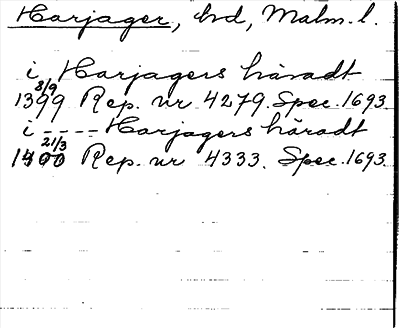 Harjager, hd, Malm. l.
i Harjagers häradt
1399 8/9 Rep. nr 4279. Spec. 1693
i - - - - Harjagers häradt
1400 21/3 Rep. nr 4333. Spec. 1693